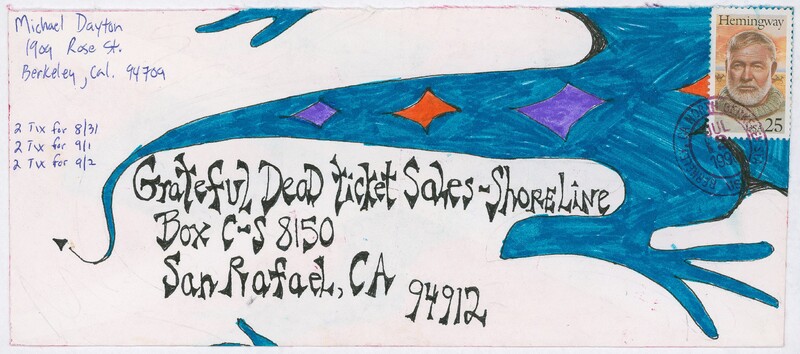 Michael Dayton
1909 Rose St.
Berkeley, Cal. 94709
2 Tix for 8/31
2 Tix for 9/1
2 Tix for 9/2
Hemingway
25
JUL
Grateful Dead Ticket Sales - Shoreline
Box C-S 8150
San Rafael, CA
94912